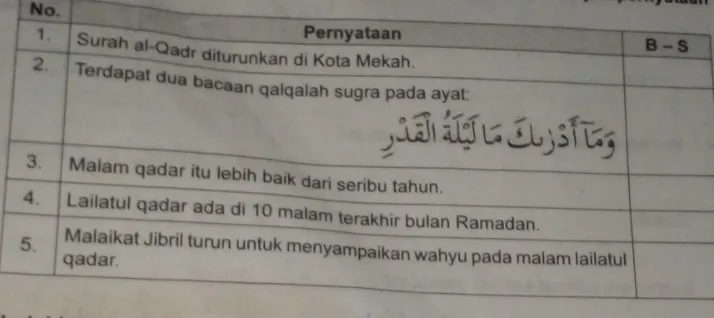 No. Pernyataan B – S
1. Surah al-Qadr diturunkan di Kota Mekah.
2. Terdapat dua bacaan qalqalah sugra pada ayat:
وَمَآ أَدْرٰىكَ مَا لَيْلَةُ الْقَدْرِ
3. Malam qadar itu lebih baik dari seribu tahun.
4. Lailatul qadar ada di 10 malam terakhir bulan Ramadan.
5. Malaikat Jibril turun untuk menyampaikan wahyu pada malam lailatul
qadar.